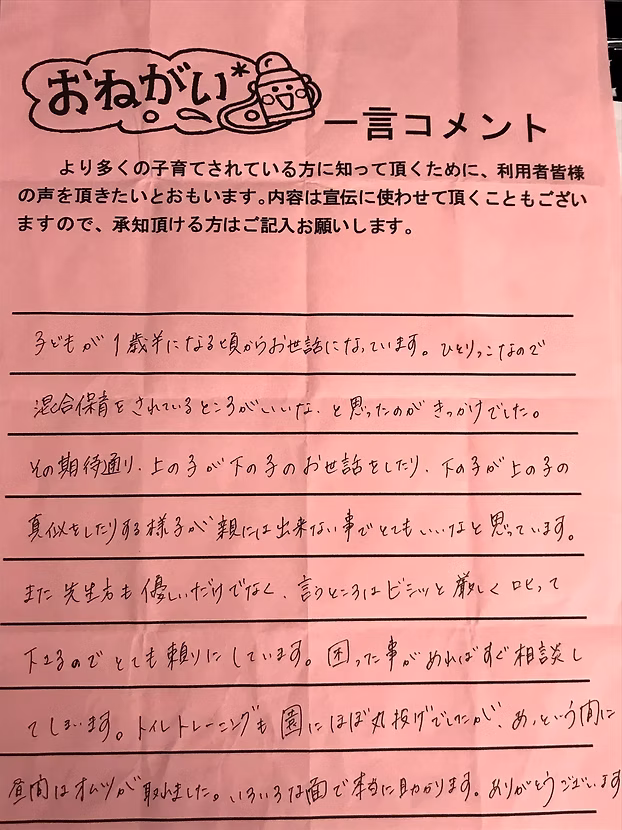 おねがい*
一言コメント
より多くの子育てされている方に知って頂くために、利用者皆様
の声を頂きたいとおもいます。内容は宣伝に使わせて頂くこともござい
ますので、承知頂ける方はご記入お願いします。
子どもが1歳半になる頃からお世話になっています。ひとりっこなので
混合保育をされているところがいいな、と思ったのがきっかけでした。
その期待通り、上の子が下の子のお世話をしたり、下の子が上の子の
真似をしたりする様子が親には出来ない事でとてもいいなと思っています。
また先生方も優しいだけでなく、言うところはビシッと厳しく叱って
下さるのでとても頼りにしています。困った事があればすぐ相談し
てしまいます。トイレトレーニングも園にほぼ丸投げでしたが、あっという間に
昼間はオムツが取れました。いろいろな面で本当に助かります。ありがとうございます